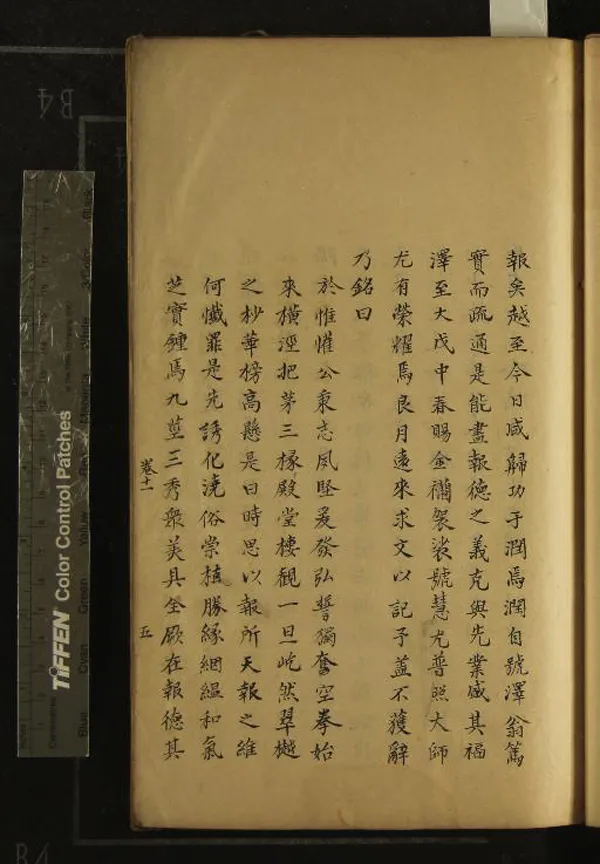 報矣越至今日咸歸功于潤焉潤自號澤翁篤
實而疏通是能盡報德之義克與先業咸其福
澤至大戊中春賜金襴袈裟號慧光普照大師
尤有榮耀焉良月遠來求文以記予蓋不獲辭
乃銘曰
於惟懽公秉志夙堅爰發弘誓獨奮空拳始
來橫涇把茅三椽殿堂樓觀一旦屹然翠樾
之杪華榜高懸是曰時思以報所天報之維
何懺罪是先誘化澆俗崇植勝緣絪縕和氣
芝實鍾焉九莖三秀衆美具全厥在報德其
卷十一
五
TIFFEN Color Control Patches
Blue
Cyan
Green
Yellow
B4
B4